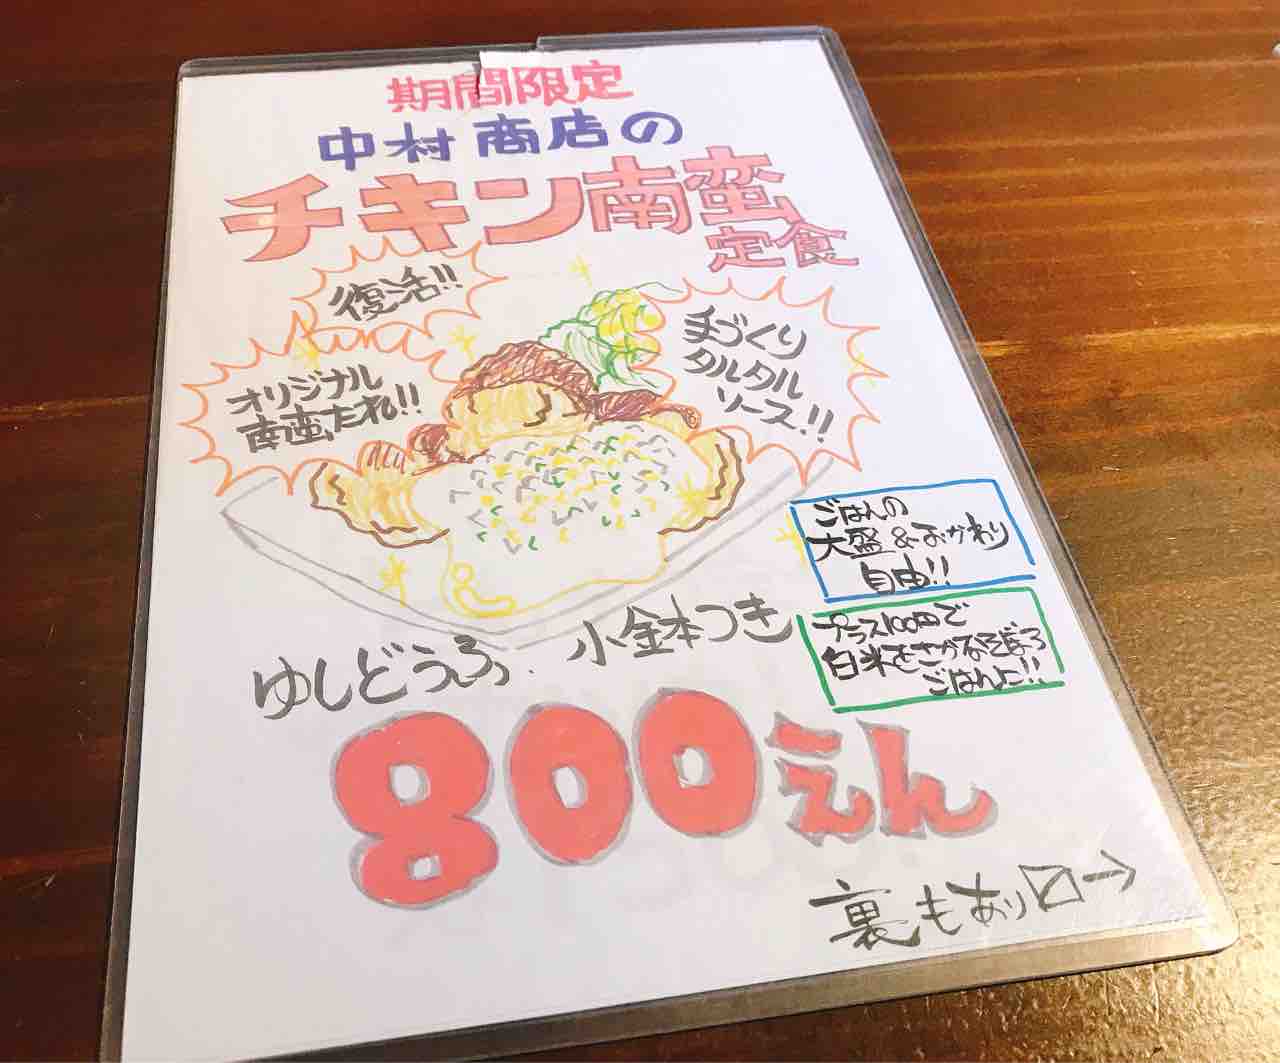 期間限定
中村商店の
チキン南蛮
定食
復活!!
オリジナル
南蛮たれ!!
手づくり
タルタル
ソース!!
ごはんの
大盛&おかわり
自由!!
プラス100円で
白米をさかなそぼろ
ごはんに!!
ゆしどうふ・小鉢2本つき
800えん
裏もあり〼→